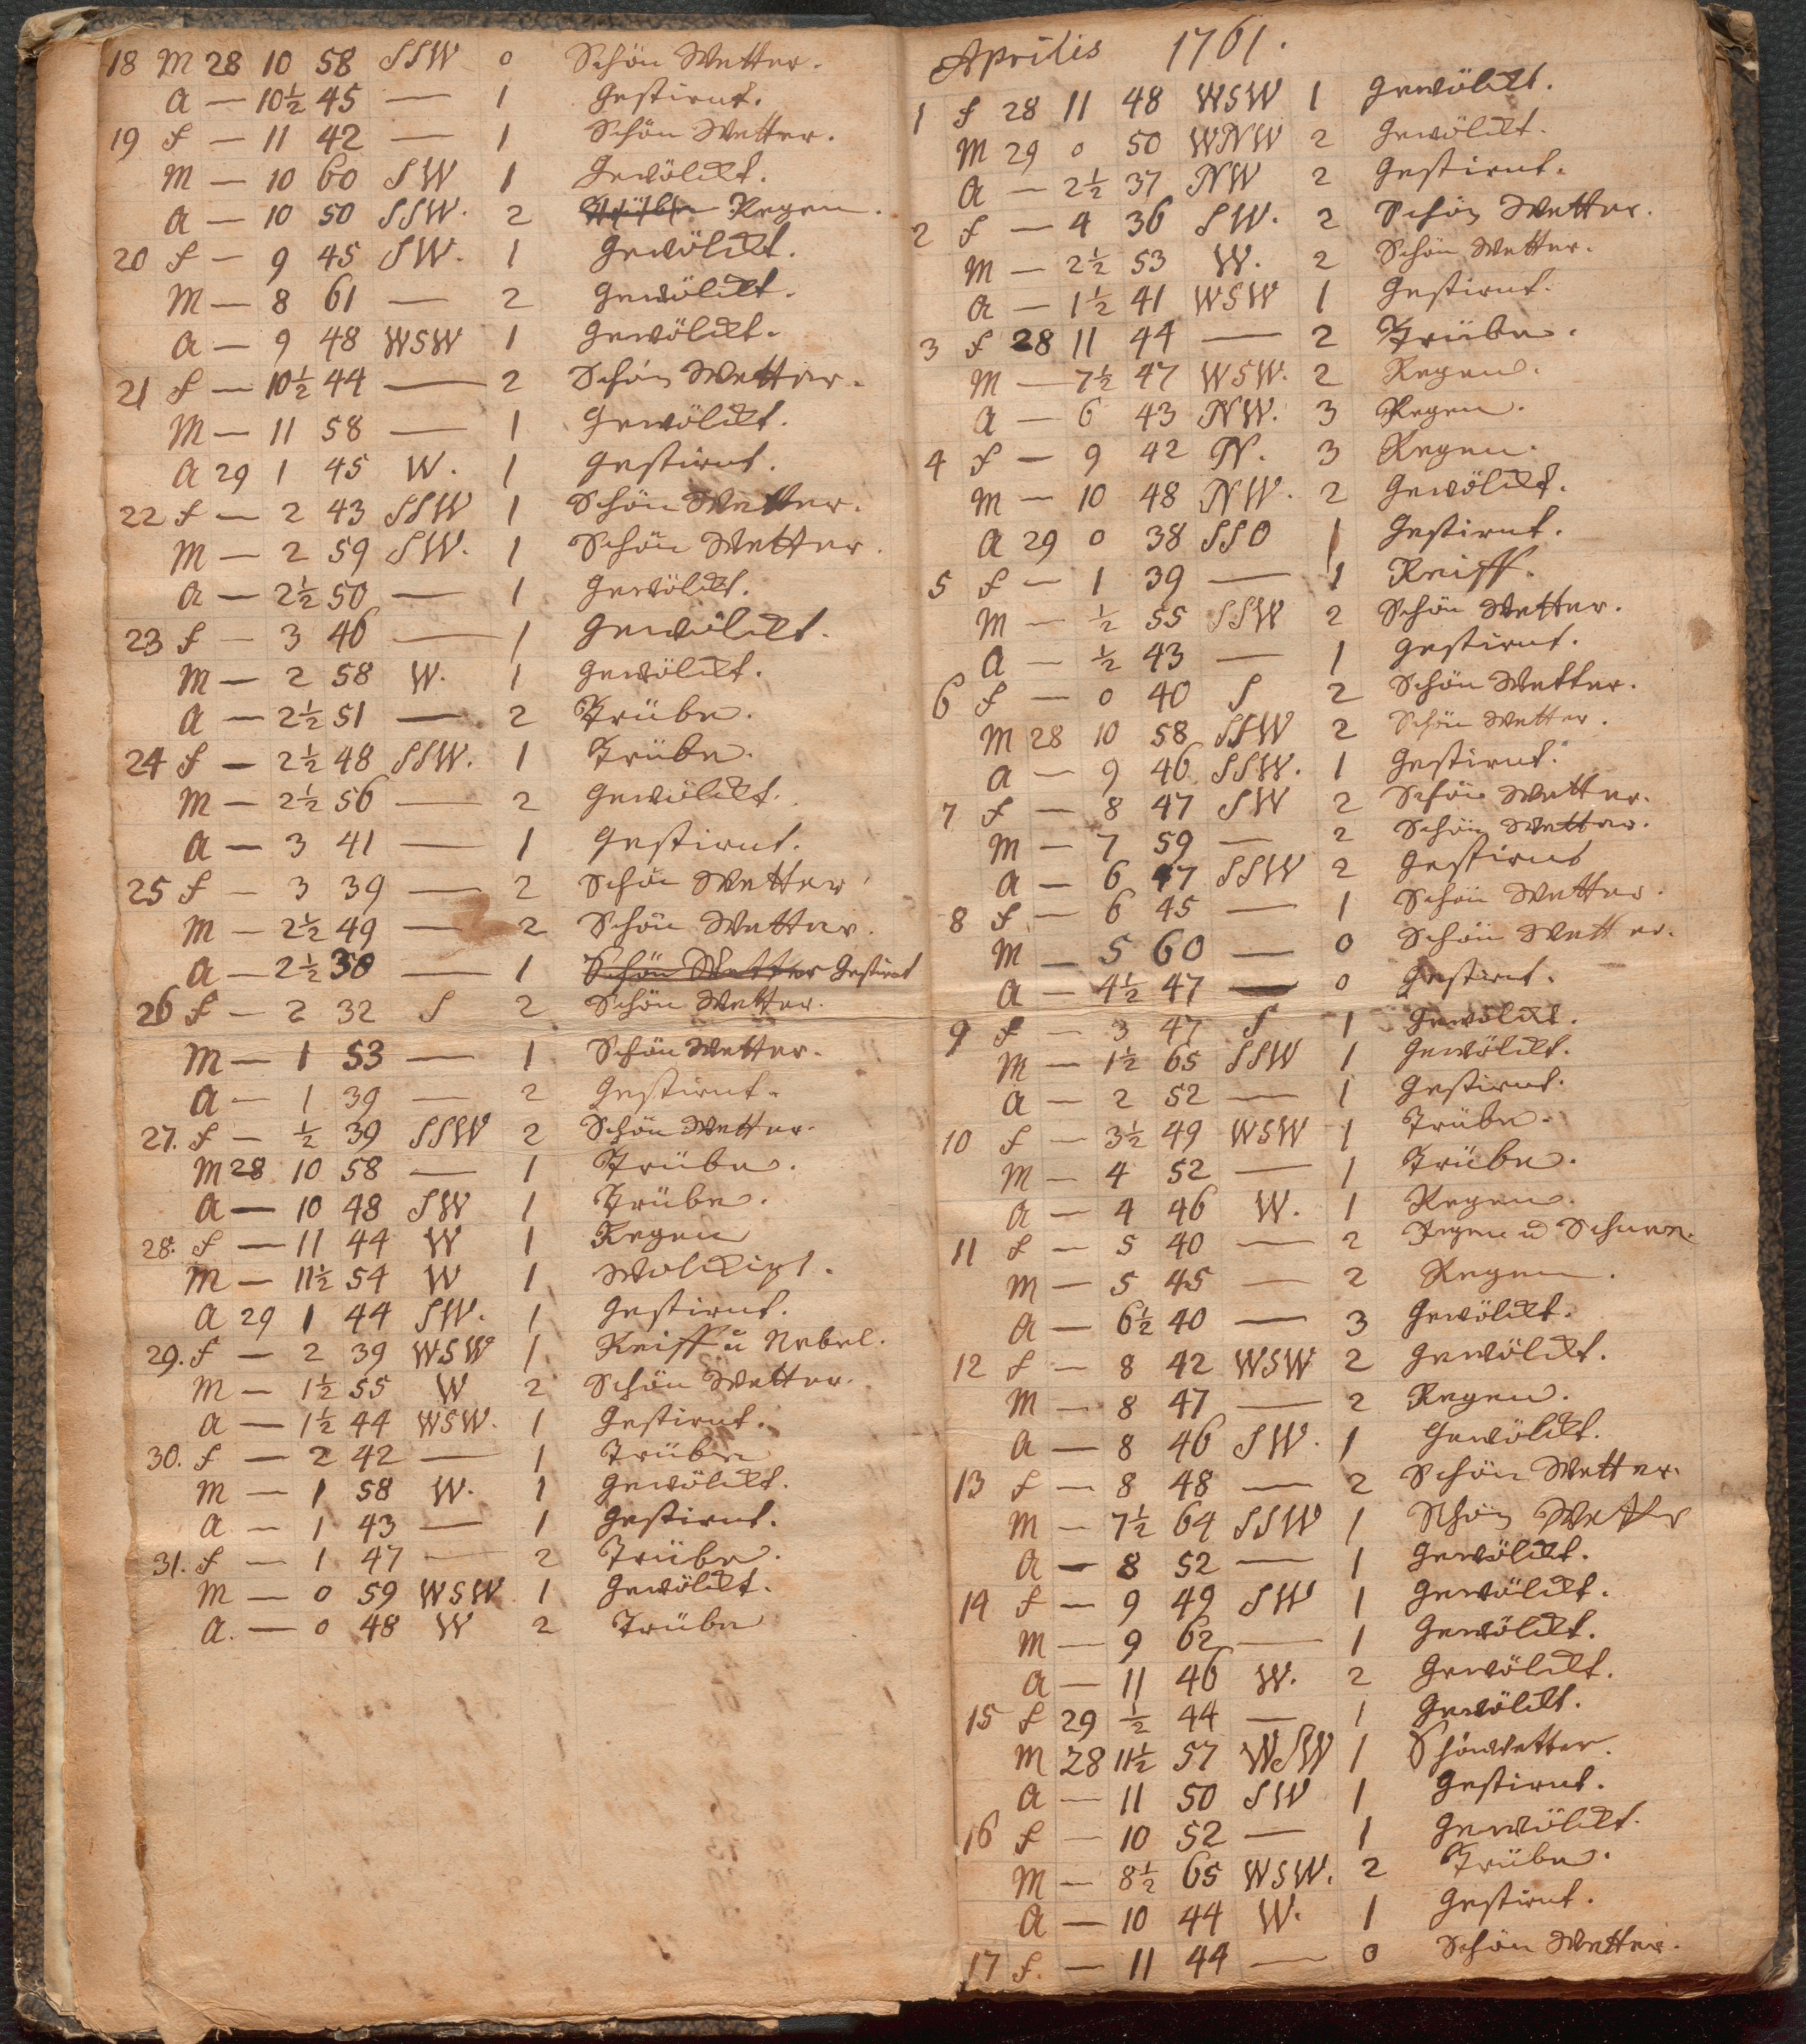 18 M 28 10 58 SSW 0 Schön Wetter.
A — 10½ 45 — 1 Gestirnt.
19 f — 11 42 — 1 Schön Wetter.
M — 10 60 SW 1 Gewölckt.
A — 10 50 SSW. 2 Regen.
20 f — 9 45 SW. 1 Gewölckt.
M — 8 61 — 2 Gewölckt.
A — 9 48 WSW 1 Gewölckt.
21 f — 10½ 44 — 2 Schön Wetter.
M — 11 58 — 1 Gewölckt.
A 29 1 45 W. 1 Gestirnt.
22 f — 2 43 SSW 1 Schön Wetter.
M — 2 59 SW. 1 Schön Wetter.
A — 2½ 50 — 1 Gewölckt.
23 f — 3 46 — 1 Gewölckt.
M — 2 58 W. 1 Gewölckt.
A — 2½ 51 — 2 Trübe.
24 f — 2½ 48 SSW. 1 Trübe.
M — 2½ 56 — 2 Gewölckt.
A — 3 41 — 1 Gestirnt.
25 f — 3 39 — 2 Schön Wetter
M — 2½ 49 — 2 Schön Wetter.
A — 2½ 38 — 1 Schön Wetter Gestirnt
26 f — 2 32 S 2 Schön Wetter.
M — 1 53 — 1 Schön Wetter.
A — 1 39 — 2 Gestirnt.
27. f — ½ 39 SSW 2 Schön Wetter.
M 28 10 58 — 1 Trübe.
A — 10 48 SW 1 Trübe.
28. f — 11 44 W 1 Regen
M — 11½ 54 W 1 Wolckigt.
A 29 1 44 SW. 1 Gestirnt.
29. f — 2 39 WSW 1 Reiff u Nebel.
M — 1½ 55 W 2 Schön Wetter.
A — 1½ 44 WSW. 1 Gestirnt.
30. f — 2 42 — 1 Trübe
M — 1 58 W. 1 Gewölckt.
A — 1 43 — 1 Gestirnt.
31. f — 1 47 — 2 Trübe.
M — 0 59 WSW 1 Gewölckt.
A. — 0 48 W 2 Trübe
Aprilis 1761.
1 f 28 11 48 WSW 1 Gewölckt.
M 29 0 50 WNW 2 Gewölckt.
A — 2½ 37 NW 2 Gestirnt.
2 f — 4 36 SW. 2 Schön Wetter.
M — 2½ 53 W. 2 Schön Wetter.
A — 1½ 41 WSW 1 Gestirnt.
3 f 28 11 44 — 2 Trübe.
M — 7½ 47 WSW. 2 Regen.
A — 6 43 NW. 3 Regen.
4 f — 9 42 N. 3 Regen.
M — 10 48 NW. 2 Gewölckt.
A 29 0 38 SSO 1 Gestirnt.
5 f — 1 39 — 1 Reiff.
M — ½ 55 SSW 2 Schön Wetter.
A — ½ 43 — 1 Gestirnt.
6 f — 0 40 S 2 Schön Wetter.
M 28 10 58 SSW 2 Schön Wetter.
A — 9 46 SSW. 1 Gestirnt.
7 f — 8 47 SW 2 Schön Wetter.
M — 7 59 — 2 Schön Wetter.
A — 6 47 SSW 2 Gestirnt
8 f — 6 45 — 1 Schön Wetter.
M — 5 60 — 0 Schön Wetter.
A — 4½ 47 — 0 Gestirnt.
9 f — 3 47 S 1 Gewölckt.
M — 1½ 65 SSW 1 Gewölckt.
A — 2 52 — 1 Gestirnt.
10 f — 3½ 49 WSW 1 Trübe.
M — 4 52 — 1 Trübe.
A — 4 46 W. 1 Regen.
11 f — 5 40 — 2 Regen u Schnee.
M — 5 45 — 2 Regen.
A — 6½ 40 — 3 Gewölckt.
12 f — 8 42 WSW 2 Gewölckt.
M — 8 47 — 2 Regen.
A — 8 46 SW. 1 Gewölckt.
13 f — 8 48 — 2 Schön Wetter.
M — 7½ 64 SSW 1 Schön Wetter
A — 8 52 — 1 Gewölckt.
14 f — 9 49 SW 1 Gewölckt.
M — 9 62 — 1 Gewölckt.
A — 11 46 W. 2 Gewölckt.
15 f 29 ½ 44 — 1 Gewölckt.
M 28 11½ 57 WSW 1 Schönwetter.
A — 11 50 SW 1 Gestirnt.
16 f — 10 52 — 1 Gewölckt.
M — 8½ 65 WSW. 2 Trübe.
A — 10 44 W. 1 Gestirnt.
17 f. — 11 44 — 0 Schön Wetter.